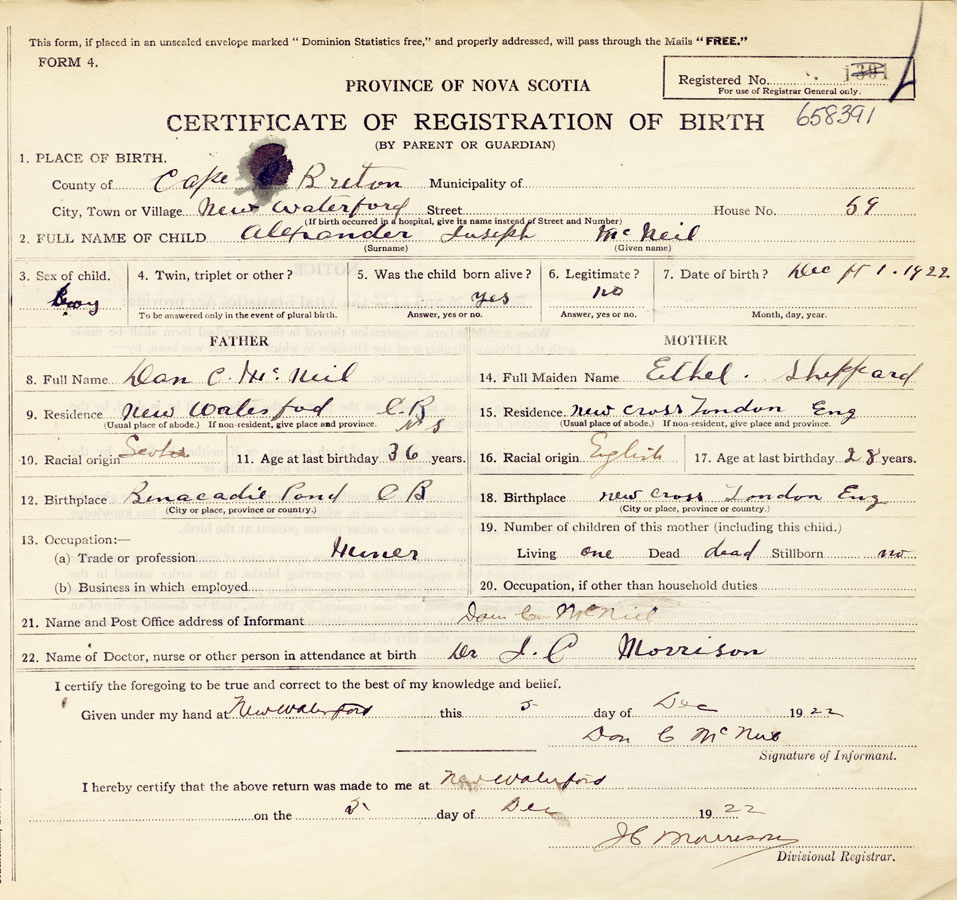 This form, if placed in an unsealed envelope marked “Dominion Statistics free,” and properly addressed, will pass through the Mails “FREE.”
FORM 4.
PROVINCE OF NOVA SCOTIA
Registered No.
For use of Registrar General only.
CERTIFICATE OF REGISTRATION OF BIRTH 658391
(BY PARENT OR GUARDIAN)
1. PLACE OF BIRTH.
County of Cape Breton Municipality of
City, Town or Village New Waterford Street House No. 59
(If birth occurred in a hospital, give its name instead of Street and Number)
2. FULL NAME OF CHILD Alexander Juseph McNeil
(Surname) (Given name)
3. Sex of child. 4. Twin, triplet or other? 5. Was the child born alive? 6. Legitimate? 7. Date of birth? Dec 1. 1922
Boy yes no
To be answered only in the event of plural birth. Answer, yes or no. Answer, yes or no. Month, day, year.
FATHER MOTHER
8. Full Name Dan C. McNeil 14. Full Maiden Name Ethel. Sheppard
9. Residence New Watesfod C.B N S 15. Residence New Cross London Eng
(Usual place of abode.) If non-resident, give place and province. (Usual place of abode.) If non-resident, give place and province.
10. Racial origin 11. Age at last birthday 36 years. 16. Racial origin English 17. Age at last birthday 28 years.
12. Birthplace Benacadie Pond C B 18. Birthplace new cross London Eng
(City or place, province or country.) (City or place, province or country.)
13. Occupation:— 19. Number of children of this mother (including this child.)
(a) Trade or profession Miner Living one Dead dead Stillborn no
(b) Business in which employed 20. Occupation, if other than household duties
21. Name and Post Office address of Informant Dan C McNeil
22. Name of Doctor, nurse or other person in attendance at birth Dr J. C Morrison
I certify the foregoing to be true and correct to the best of my knowledge and belief.
Given under my hand at New Waterford this 5 day of Dec 1922
Dan C McNeil
Signature of Informant.
I hereby certify that the above return was made to me at New Waterford
on the 5 day of Dec 1922
JC Morrison
Divisional Registrar.